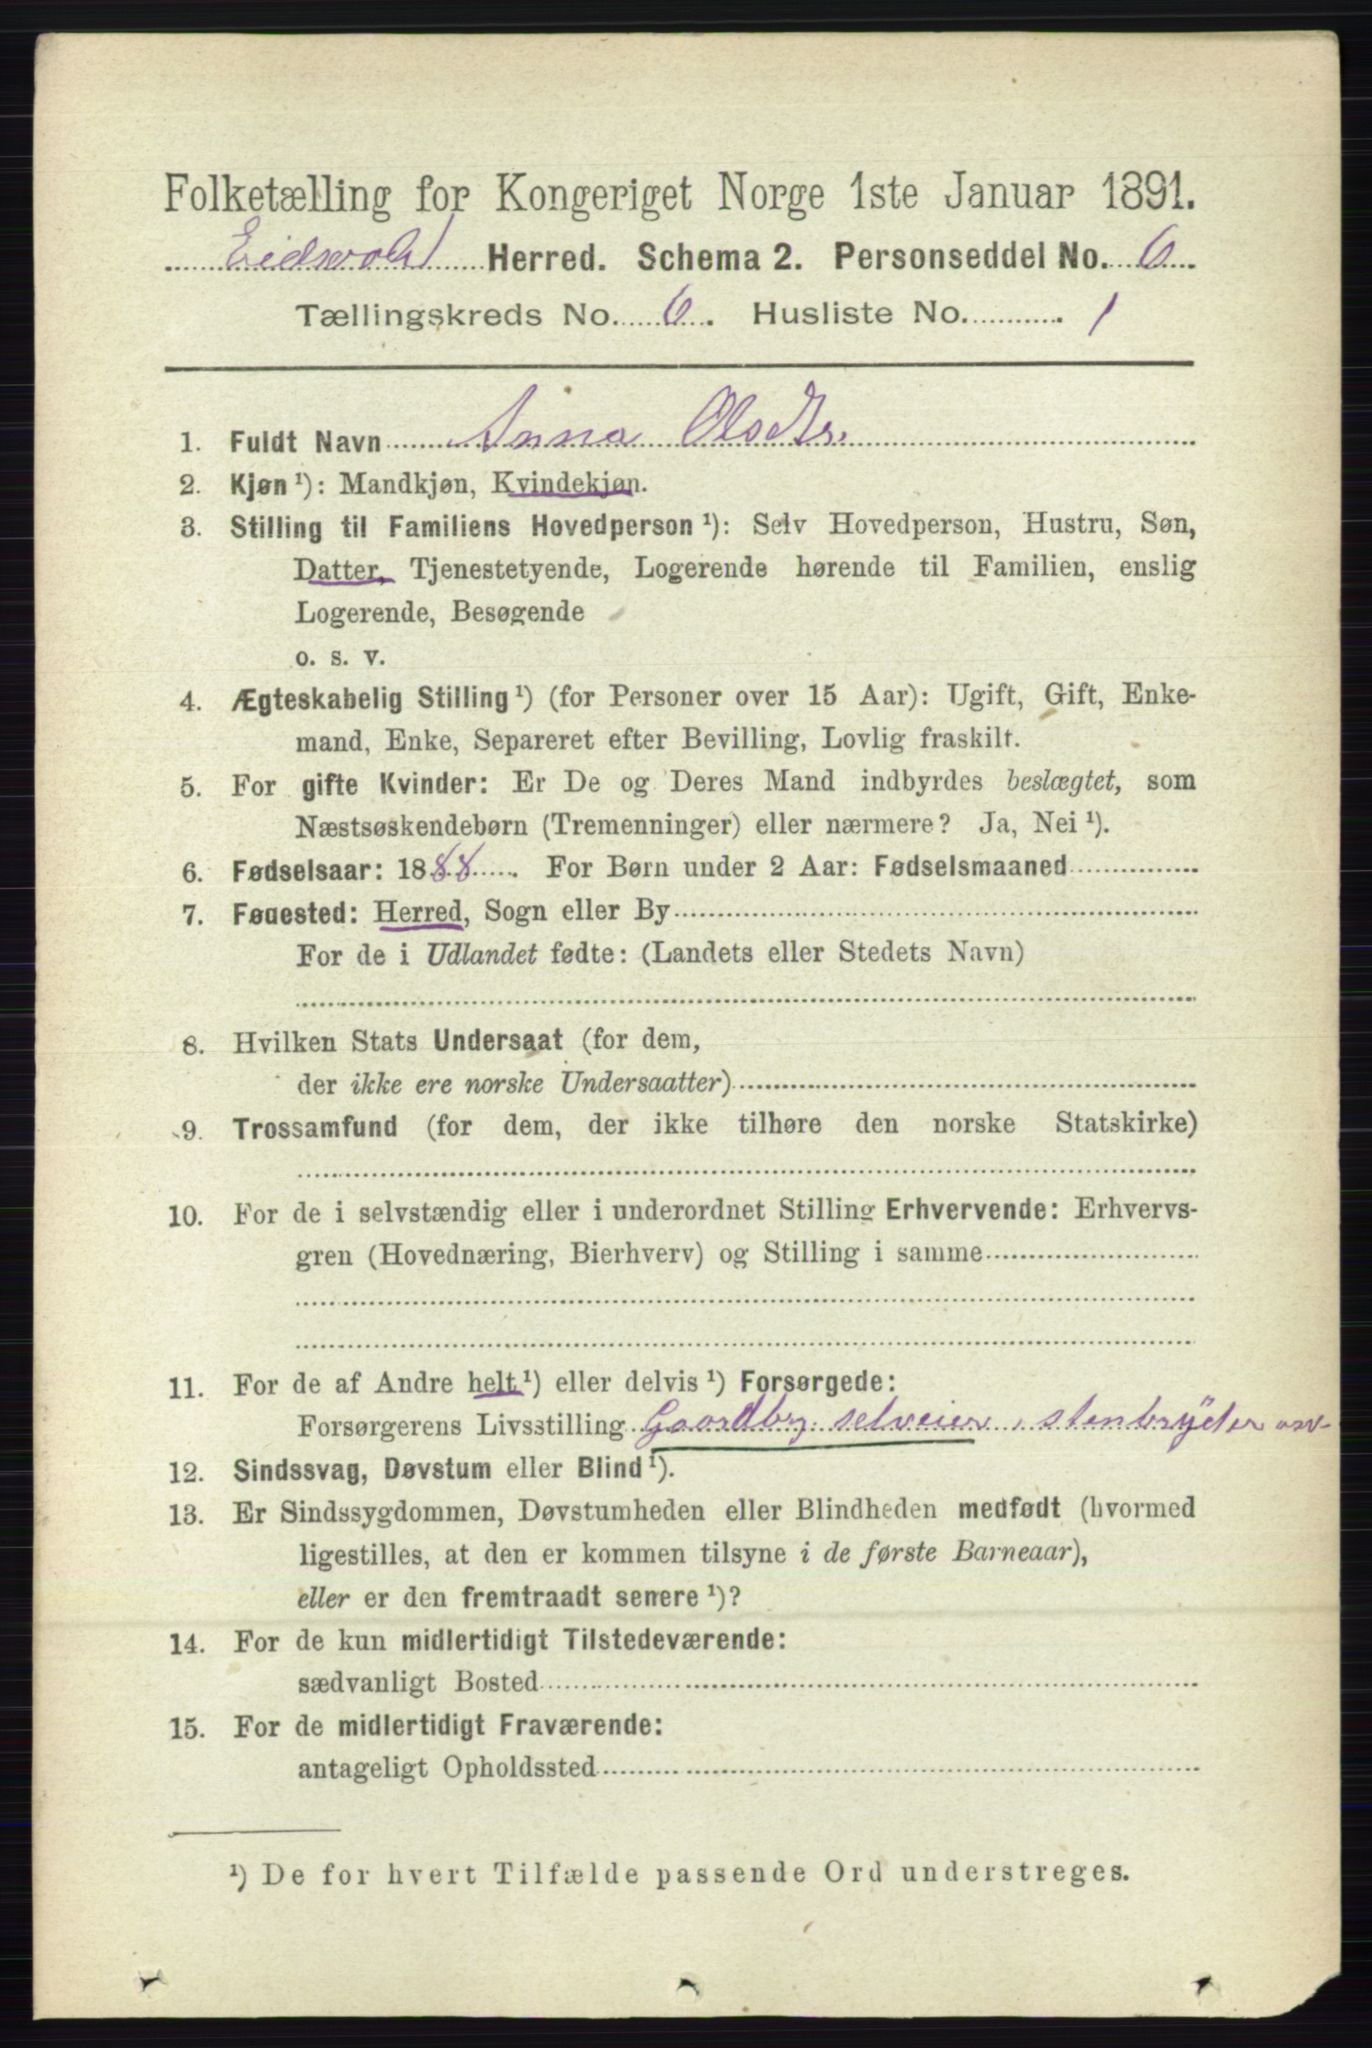 Folketælling for Kongeriget Norge 1ste Januar 1891.
Eidsvold Herred. Schema 2. Personseddel No. 6
Tællingskreds No. 6. Husliste No. 1
1. Fuldt Navn Anna Olsdtr.
2. Kjøn ¹): Mandkjøn, Kvindekjøn.
3. Stilling til Familiens Hovedperson ¹): Selv Hovedperson, Hustru, Søn,
Datter, Tjenestetyende, Logerende hørende til Familien, enslig
Logerende, Besøgende
o. s. v.
4. Ægteskabelig Stilling ¹) (for Personer over 15 Aar): Ugift, Gift, Enke-
mand, Enke, Separeret efter Bevilling, Lovlig fraskilt.
5. For gifte Kvinder: Er De og Deres Mand indbyrdes beslægtet, som
Næstsøskendebørn (Tremenninger) eller nærmere? Ja, Nei ¹).
6. Fødselsaar: 1888. For Børn under 2 Aar: Fødselsmaaned
7. Fødested: Herred, Sogn eller By
For de i Udlandet fødte: (Landets eller Stedets Navn)
8. Hvilken Stats Undersaat (for dem,
der ikke ere norske Undersaatter)
9. Trossamfund (for dem, der ikke tilhøre den norske Statskirke)
10. For de i selvstændig eller i underordnet Stilling Erhvervende: Erhvervs-
gren (Hovednæring, Bierhverv) og Stilling i samme
11. For de af Andre helt ¹) eller delvis ¹) Forsørgede:
Forsørgerens Livsstilling Gaardbr. selveier, stenbryder osv
12. Sindssvag, Døvstum eller Blind ¹).
13. Er Sindssygdommen, Døvstumheden eller Blindheden medfødt (hvormed
ligestilles, at den er kommen tilsyne i de første Barneaar),
eller er den fremtraadt senere ¹)?
14. For de kun midlertidigt Tilstedeværende:
sædvanligt Bosted
15. For de midlertidigt Fraværende:
antageligt Opholdssted
¹) De for hvert Tilfælde passende Ord understreges.